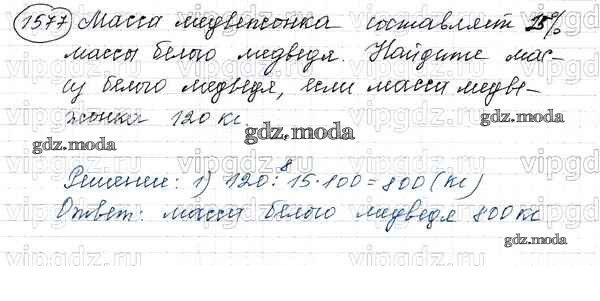 1577 Масса медвежонка составляет 15%
массы белого медведя. Найдите мас-
су белого медведя, если масса медве-
жонка 120 кг.
gdz.moda gdz.moda gdz.moda
8
Решение: 1) 120 : 15 · 100 = 800 (кг)
Ответ: масса белого медведя 800 кг
gdz.moda